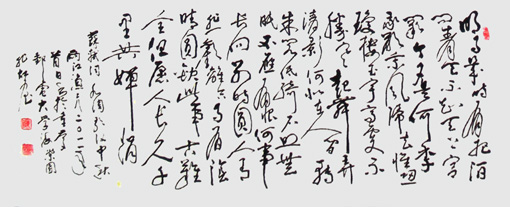 明月几时有把酒
问青天不知天上宫
阙今夕是何年
我欲乘风归去惟恐
琼楼玉宇高处不
胜寒起舞弄
清影何似在人间转
朱阁低绮户照无
眠不应有恨何事
长向别时圆人有
悲欢离合月有阴
晴圆缺此事古难
全但愿人长久千
里共婵娟
苏轼词水调歌头中秋